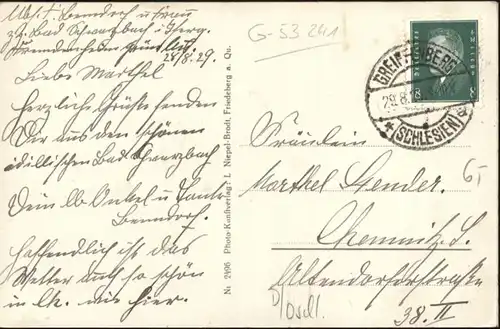 Abs. F. Benndorf u. Frau
z. Zt. Bad Schwarzbach i. Isergeb.
24/8.29.
Liebe Marthel
Herzliche Grüße senden
Dir aus dem schönen
idillischen Bad Schwarzbach
Dein lb Onkel u Tante
Benndorf.
Hoffendlich ist das
Wetter auch so schön
in Ch. wie hier.
Nr. 2495 Photo-Kunstverlag: I. Niepel-Bradt, Friedeberg a. Qu.
G-53 241
DEUTSCHES REICH
8
GREIFFENBERG
29.8.
* (SCHLESIEN) a
6,-
Fräulein
Marthel Gender.
Chemnitz. S.
Altendorferstraße
38. II